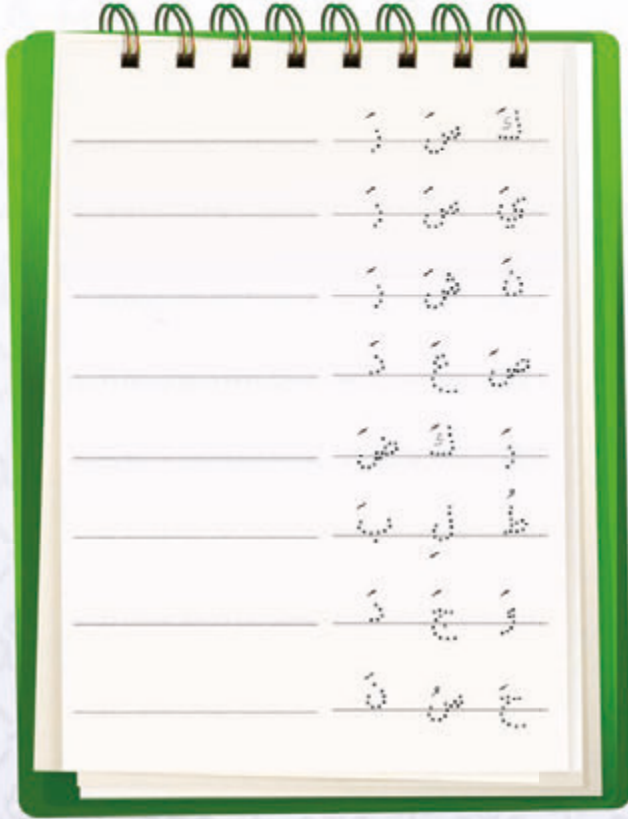 كَ سَ رَ
يَ سَ رَ
هَ صَ رَ
صَ عَ دَ
رَ كَ ضَ
طُ لِ بَ
وَ جَ دَ
حَ سُ نَ